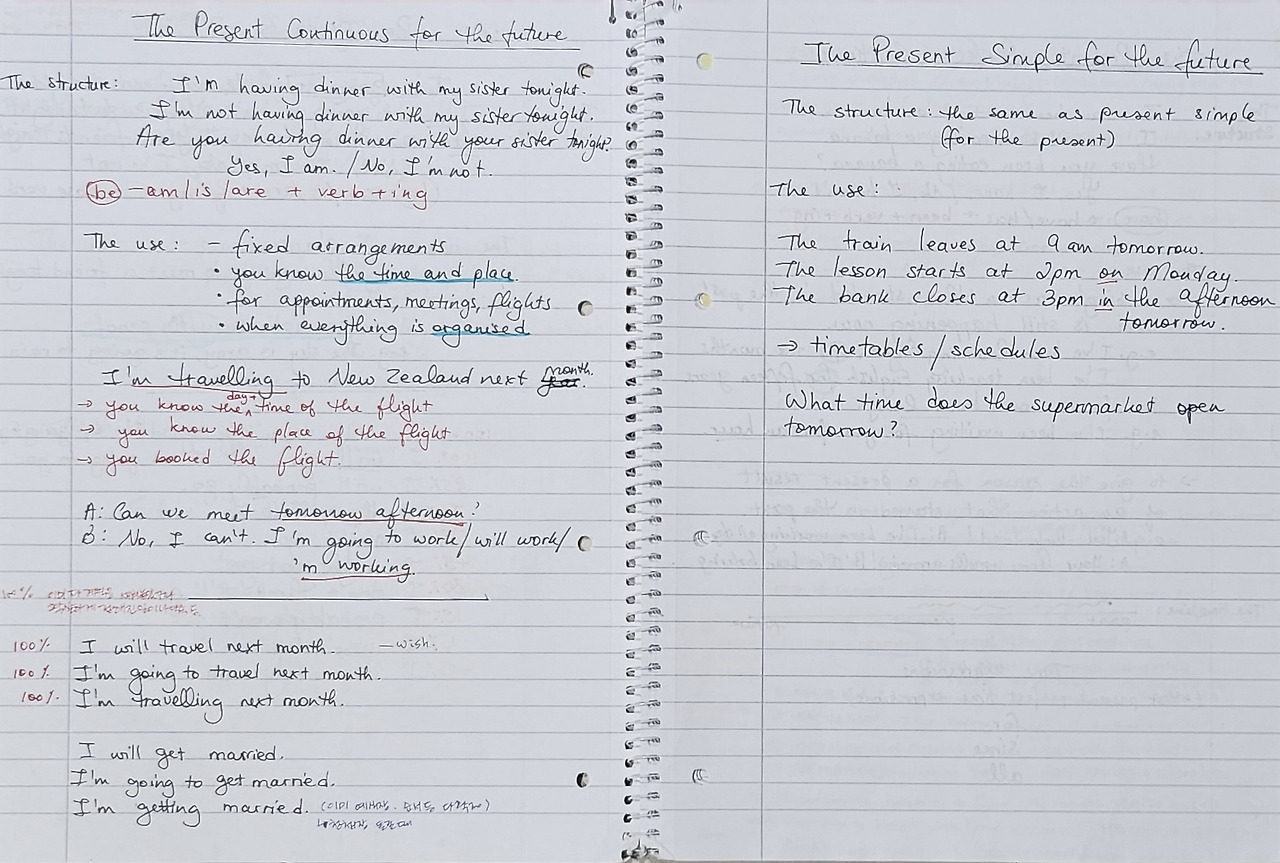 The Present Continuous for the future
The structure: I'm having dinner with my sister tonight.
I'm not having dinner with my sister tonight.
Are you having dinner with your sister tonight?
Yes, I am. / No, I'm not.
be - am/is/are + verb + ing
The use: - fixed arrangements
• you know the time and place.
• for appointments, meetings, flights
• when everything is organised
I'm travelling to New Zealand next month.
→ you know the day + time of the flight
→ you know the place of the flight
→ you booked the flight.
A: Can we meet tomorrow afternoon?
B: No, I can't. I'm going to work / will work /
'm working.
100% I will travel next month. - wish.
100% I'm going to travel next month.
100% I'm travelling next month.
I will get married.
I'm going to get married.
I'm getting married.
The Present Simple for the future
The structure: the same as present simple
(for the present)
The use:
The train leaves at 9 am tomorrow.
The lesson starts at 2pm on Monday.
The bank closes at 3pm in the afternoon
tomorrow.
→ timetables / schedules
What time does the supermarket open
tomorrow?